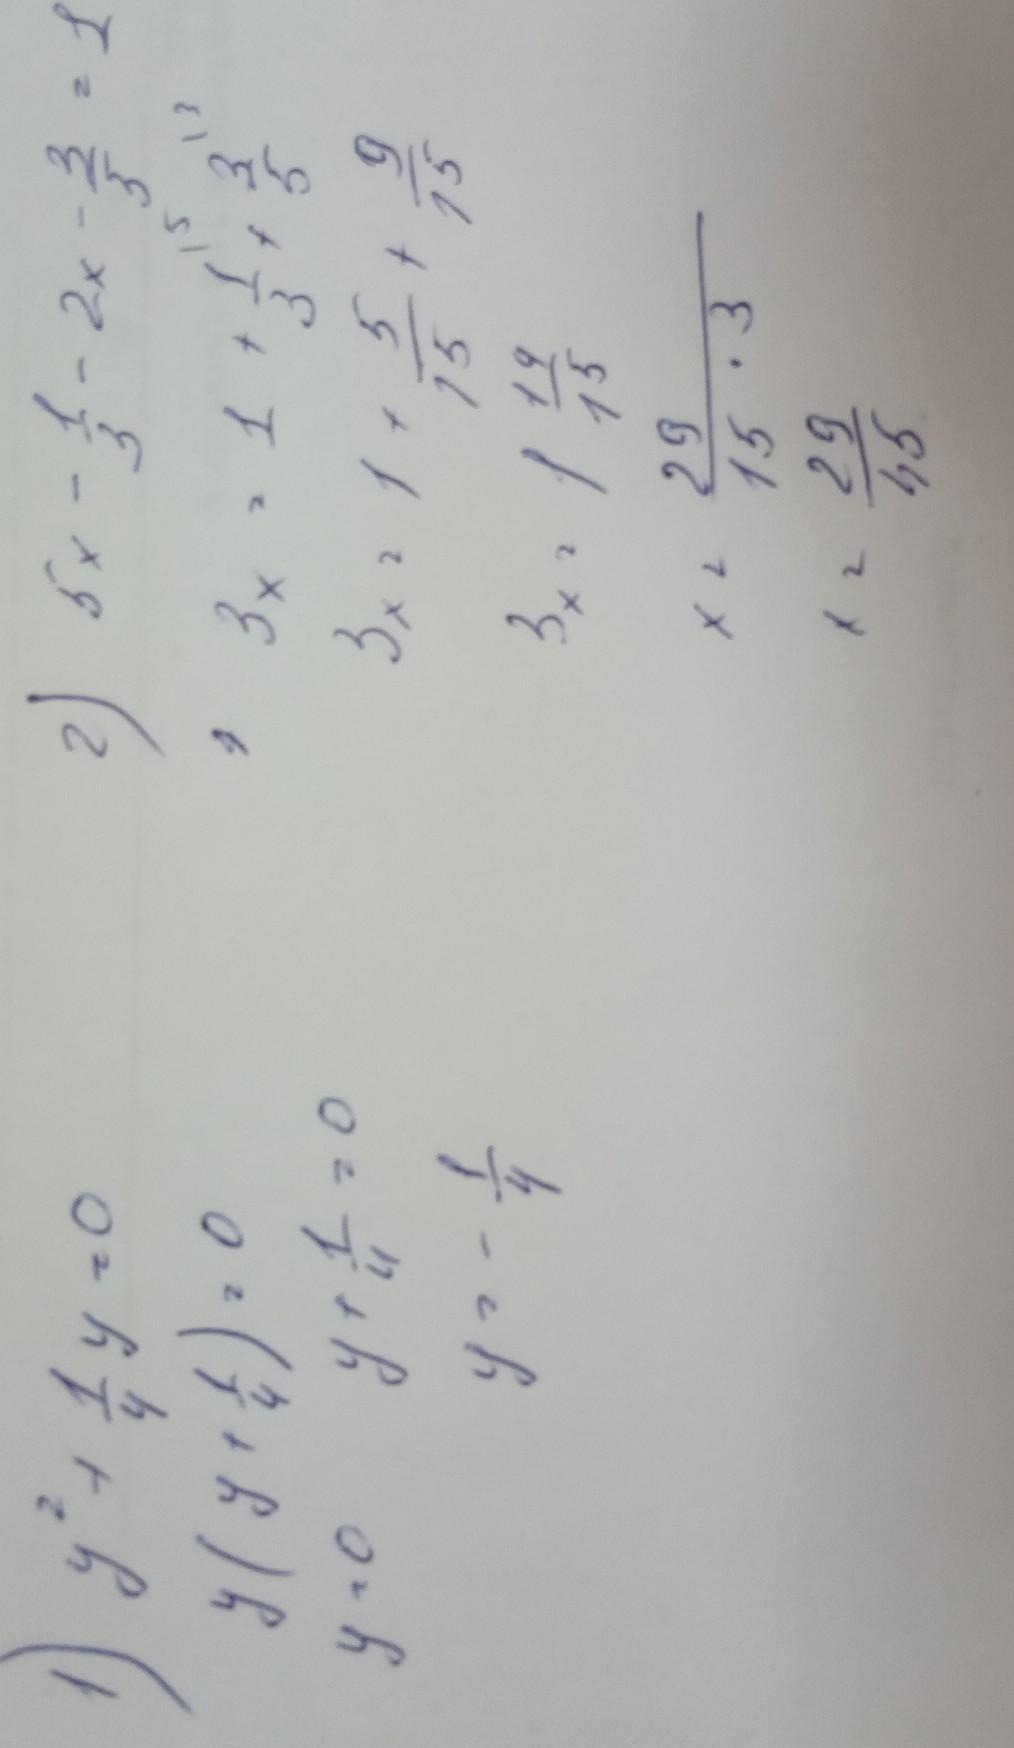 1) y² + 1/4 y = 0
y(y + 1/4) = 0
y = 0 y + 1/4 = 0
y = - 1/4
2) 5x - 1/3 - 2x - 3/5 = 1
3x = 1 + 1/3 \5 + 3/5 \3
3x = 1 + 5/15 + 9/15
3x = 1 14/15
x = 29/(15 · 3)
x = 29/45